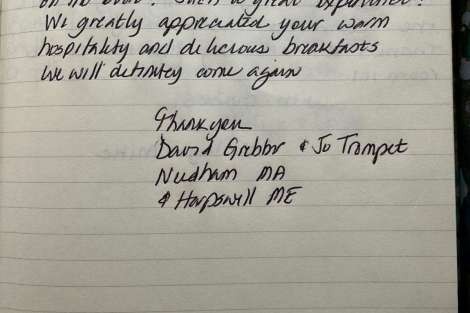 on the cove! Such a great experience!
We greatly appreciated your warm
hospitality and delicious breakfasts
We will definitey come again
Thank you
David Grabbr & Jo Trompet
Needham MA
& Harpswell ME